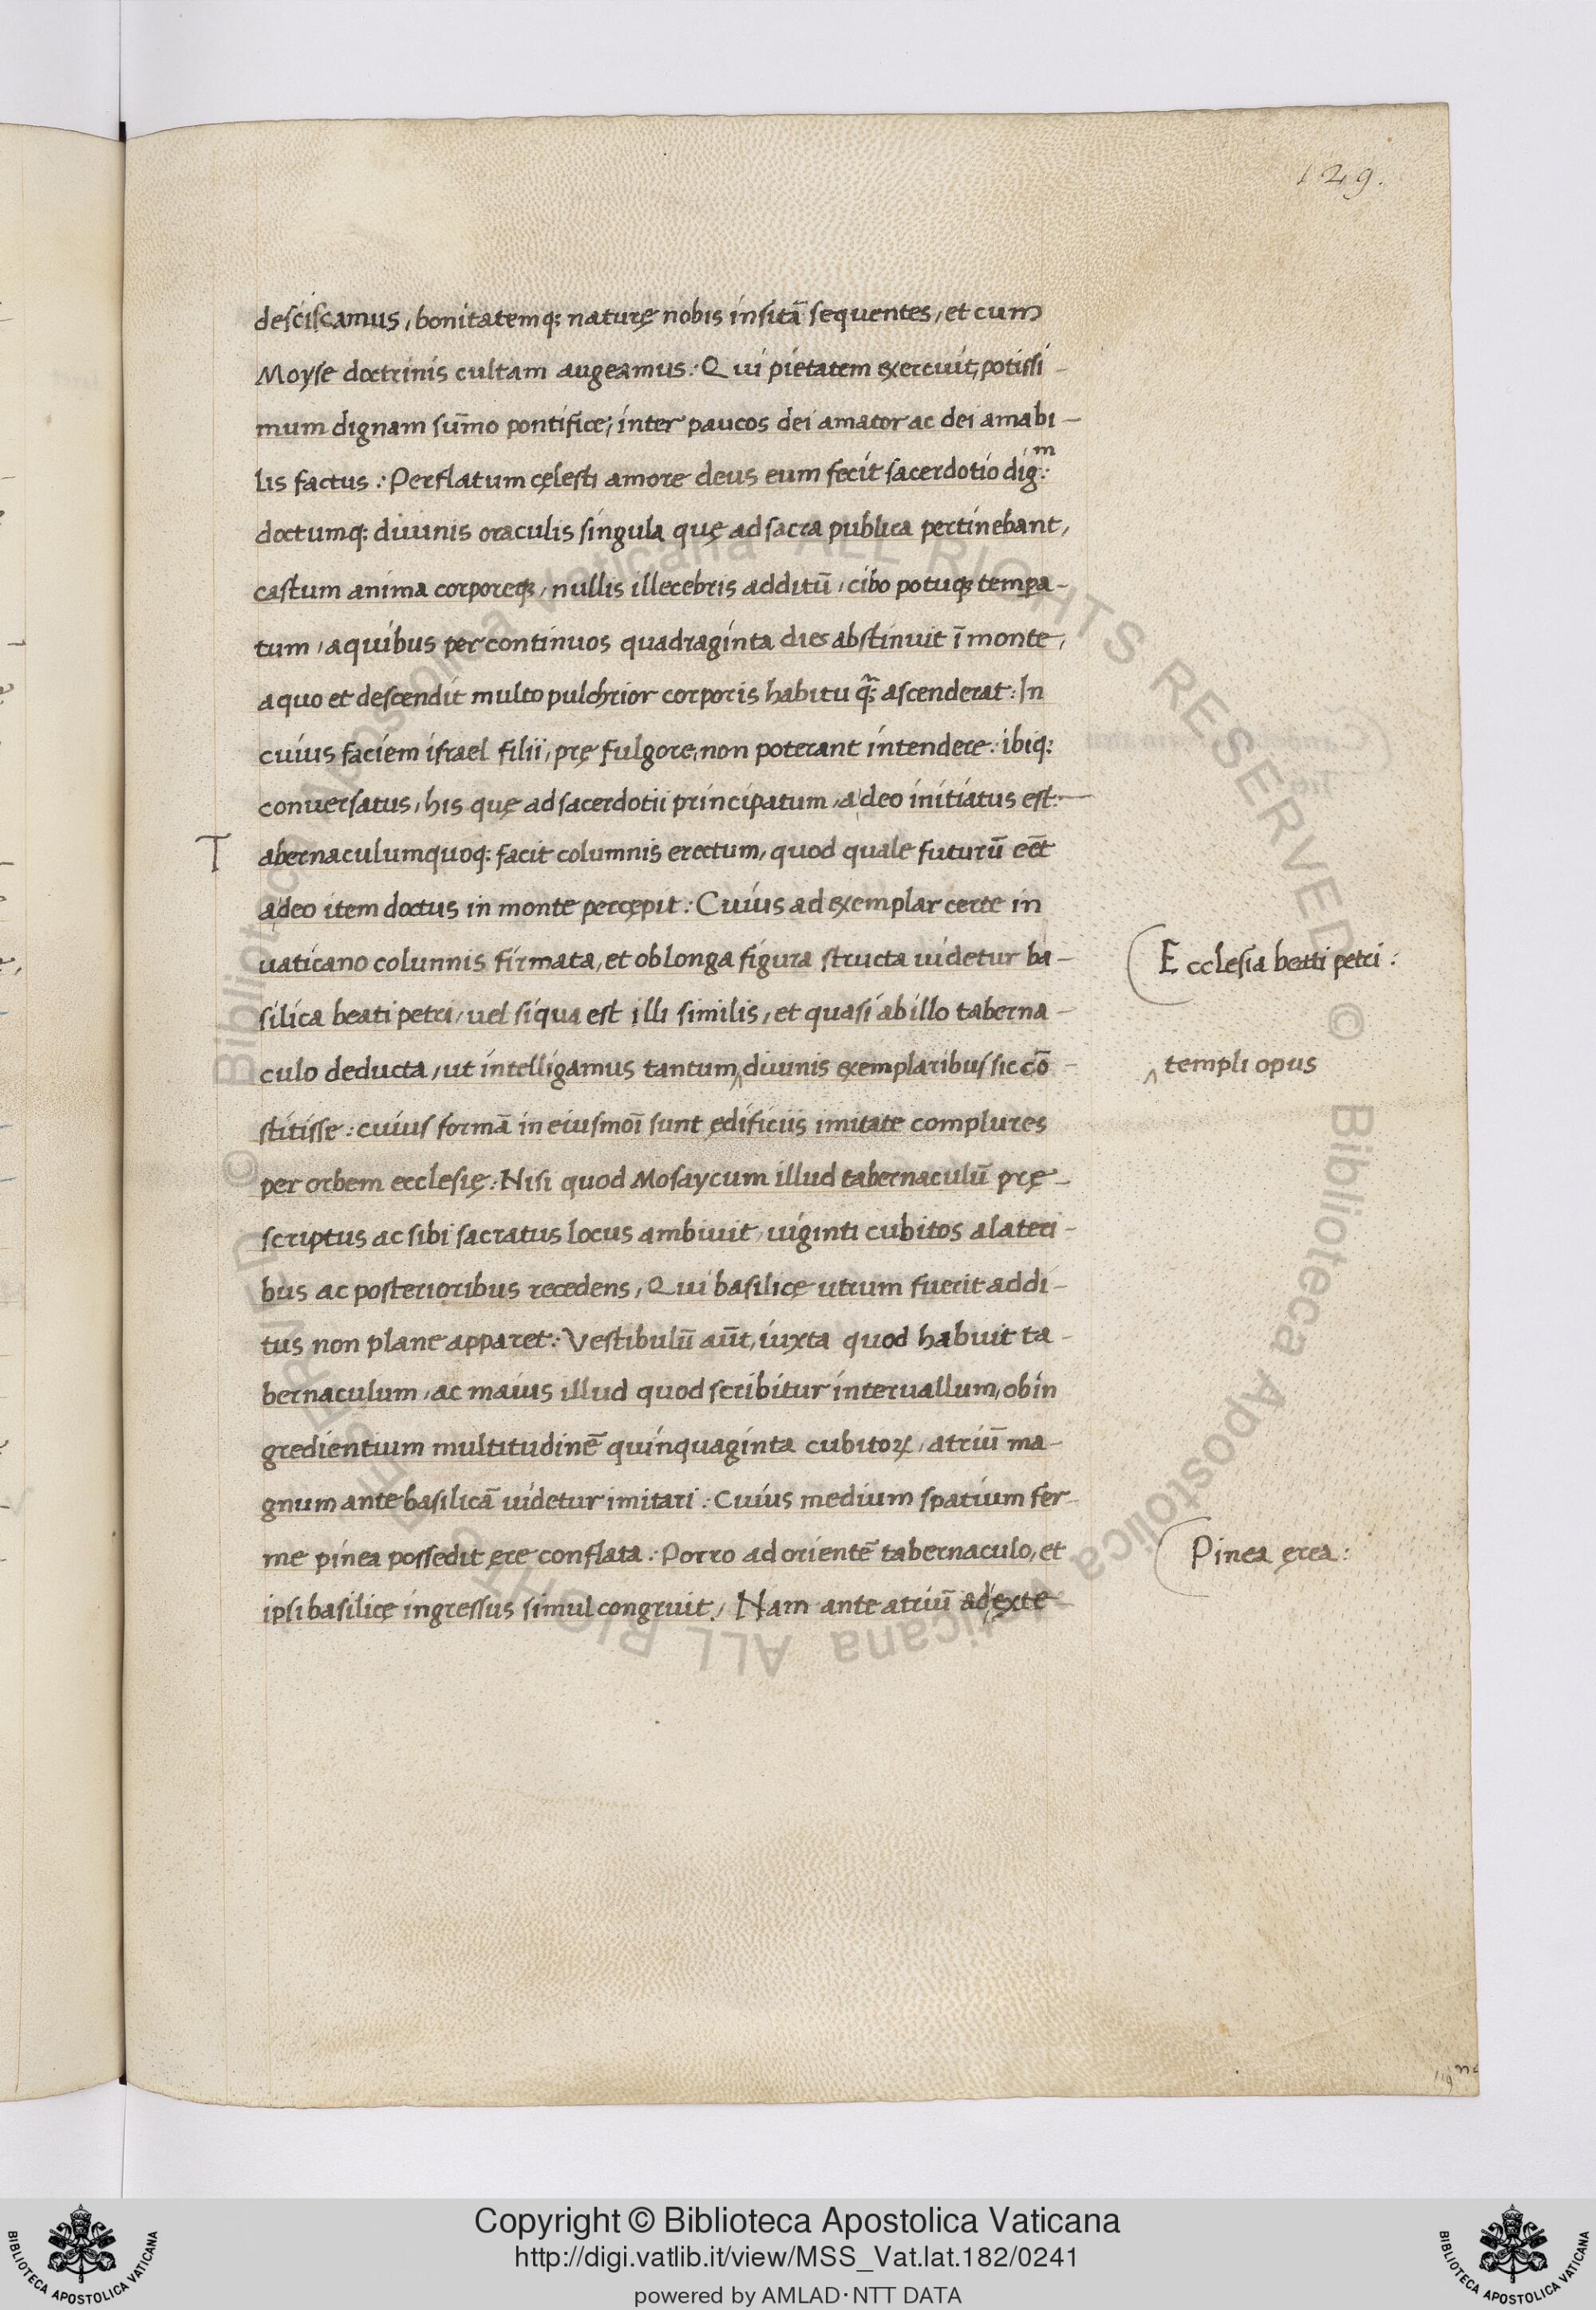 129.
desciscamus, bonitatemq; naturę nobis insitā sequentes, et cum
Moyse doctrinis cultam augeamus: Qui pietatem exercuit, potissi-
mum dignam sūmo pontifice, inter paucos dei amator ac dei amabi-
lis factus: Perflatum cęlesti amore deus eum fecit sacerdotio dig.m:
doctumq; diuinis oraculis singula quę ad sacra publica pertinebant,
castum anima corporeq; nullis illecebris additū, cibo potuq; tempa-
tum, a quibus per continuos quadraginta dies abstinuit ī monte,
a quo et descendit multo pulchrior corporis habitu q̃; ascenderat: In
cuius faciem israel filii, prę fulgore, non poterant intendere: ibiq;
conuersatus, his quę ad sacerdotii principatum, a deo initiatus est:-
Tabernaculumquoq; facit columnis erectum, quod quale futurū eēt
a deo item doctus in monte percępit: Cuius ad exemplar certe in
uaticano colunnis firmata, et oblonga figura structa uidetur ba-
Ecclesia beati petri:
silica beati petri, uel siqua est illi similis, et quasi ab illo taberna-
culo deducta, ut intelligamus tantum ‸ diuinis exemplaribus sic cō-
‸ templi opus
stitisse: cuius formā in eiusmoī sunt ędificiis imitate complures
per orbem ecclesię: Nisi quod Mosaycum illud tabernaculū prę-
scriptus ac sibi sacratus locus ambiuit, uiginti cubitos a lateri-
bus ac posterioribus recedens, Qui basilicę utrum fuerit addi-
tus non plane apparet: Vestibulū aūt, iuxta quod habuit ta-
bernaculum, ac maius illud quod scribitur interuallum, ob in
gredientium multitudinē quinquaginta cubitoꝝ, atriū ma-
gnum ante basilicā uidetur imitari: Cuius medium spatium fer-
me pinea possedit ęre conflata: Porro ad orientē tabernaculo, et
Pinea ęrea:
ipsi basilicę ingressus simul congruit, Nam ante atriū ad exte-
© Biblioteca Apostolica Vaticana ALL RIGHTS RESERVED © Biblioteca Apostolica Vaticana ALL RIGHTS RESERVED
Copyright © Biblioteca Apostolica Vaticana
http://digi.vatlib.it/view/MSS_Vat.lat.182/0241
powered by AMLAD·NTT DATA
BIBLIOTECA APOSTOLICA VATICANA
BIBLIOTECA APOSTOLICA VATICANA